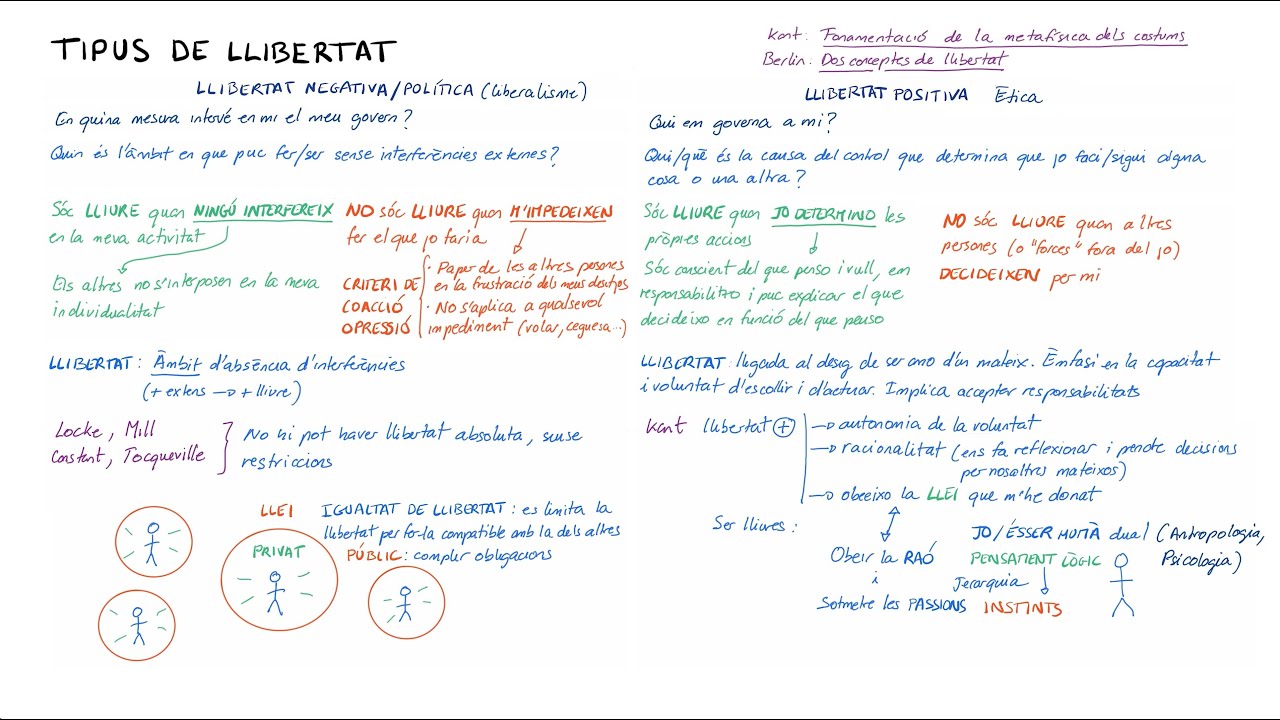 TIPUS DE LLIBERTAT
Kant: Fonamentació de la metafísica dels costums
Berlin: Dos conceptes de llibertat
LLIBERTAT NEGATIVA/POLÍTICA (liberalisme)
En quina mesura intervé en mi el meu govern?
Quin és l'àmbit en que puc fer/ser sense interferències externes?
Sóc LLIURE quan NINGÚ INTERFEREIX
en la meva activitat
Els altres no s'interposen en la meva
individualitat
NO sóc LLIURE quan M'IMPEDEIXEN
fer el que jo faria
CRITERI DE
COACCIÓ
OPRESSIÓ
· Paper de les altres persones
en la frustració dels meus desitjos
· No s'aplica a qualsevol
impediment (volar, ceguesa...)
LLIBERTAT: Àmbit d'absència d'interferències
(+ extens → + lliure)
Locke, Mill
Constant, Tocqueville
No hi pot haver llibertat absoluta, sense
restriccions
LLEI
IGUALTAT DE LLIBERTAT: es limita la
llibertat per fer-la compatible amb la dels altres
PRIVAT
PÚBLIC: complir obligacions
LLIBERTAT POSITIVA Ètica
Qui em governa a mi?
Qui/què és la causa del control que determina que jo faci/sigui alguna
cosa o una altra?
Sóc LLIURE quan JO DETERMINO les
pròpies accions
Sóc conscient del que penso i vull, em
responsabilitzo i puc explicar el que
decideixo en funció del que penso
NO sóc LLIURE quan altres
persones (o "forces" fora del jo)
DECIDEIXEN per mi
LLIBERTAT: lligada al desig de ser amo d'un mateix. Èmfasi en la capacitat
i voluntat d'escollir i d'actuar. Implica acceptar responsabilitats
Kant llibertat +
→ autonomia de la voluntat
→ racionalitat (ens fa reflexionar i prendre decisions
per nosaltres mateixos)
→ obeeixo la LLEI que m'he donat
Ser lliures:
Obeir la RAÓ
i
Sotmetre les PASSIONS
JO/ÉSSER HUMÀ dual (Antropologia,
Psicologia)
PENSAMENT LÒGIC
Jerarquia
INSTINTS